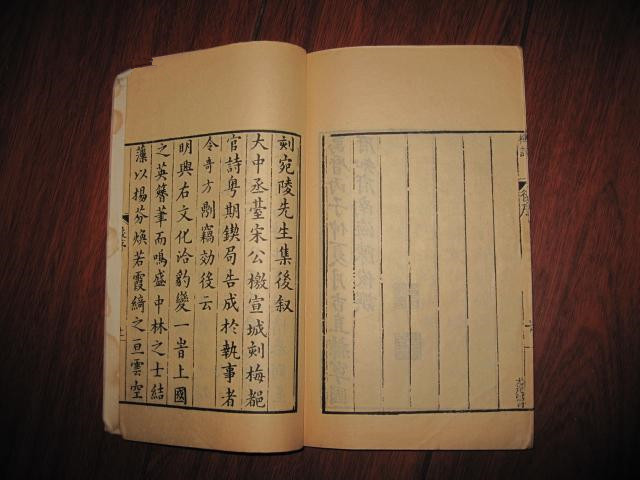 梅詩
後序
刻宛陵先生集後叙
大中丞臺宋公檄宣城刻梅都
官詩粤期鍥局告成於執事者
令奇方剞竊効後云
明興右文化洽豹變一旹上國
之英簪筆而鳴盛中林之士結
藻以揚芬煥若霞綺之亘雲空